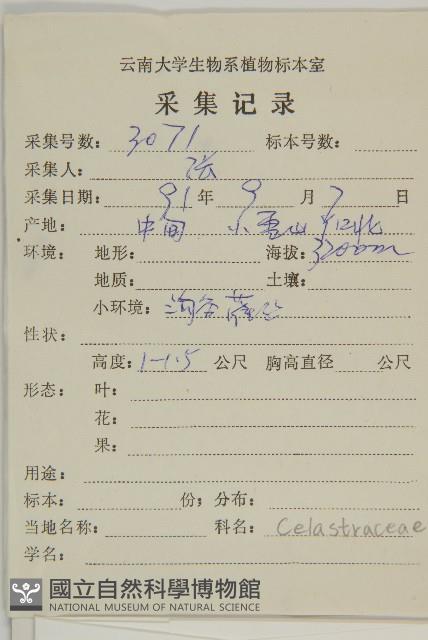 云南大学生物系植物标本室
采集记录
采集号数: 3071 标本号数:
采集人: 张
采集日期: 91 年 9 月 7 日
产地: 中甸 小雪山 北
环境: 地形: 海拔: 3200m
地质: 土壤:
小环境: 沟谷
性状:
高度: 1-1.5 公尺 胸高直径 公尺
形态: 叶:
花:
果:
用途:
标本: 份; 分布:
当地名称: 科名: Celastraceae
学名:
國立自然科學博物館
NATIONAL MUSEUM OF NATURAL SCIENCE